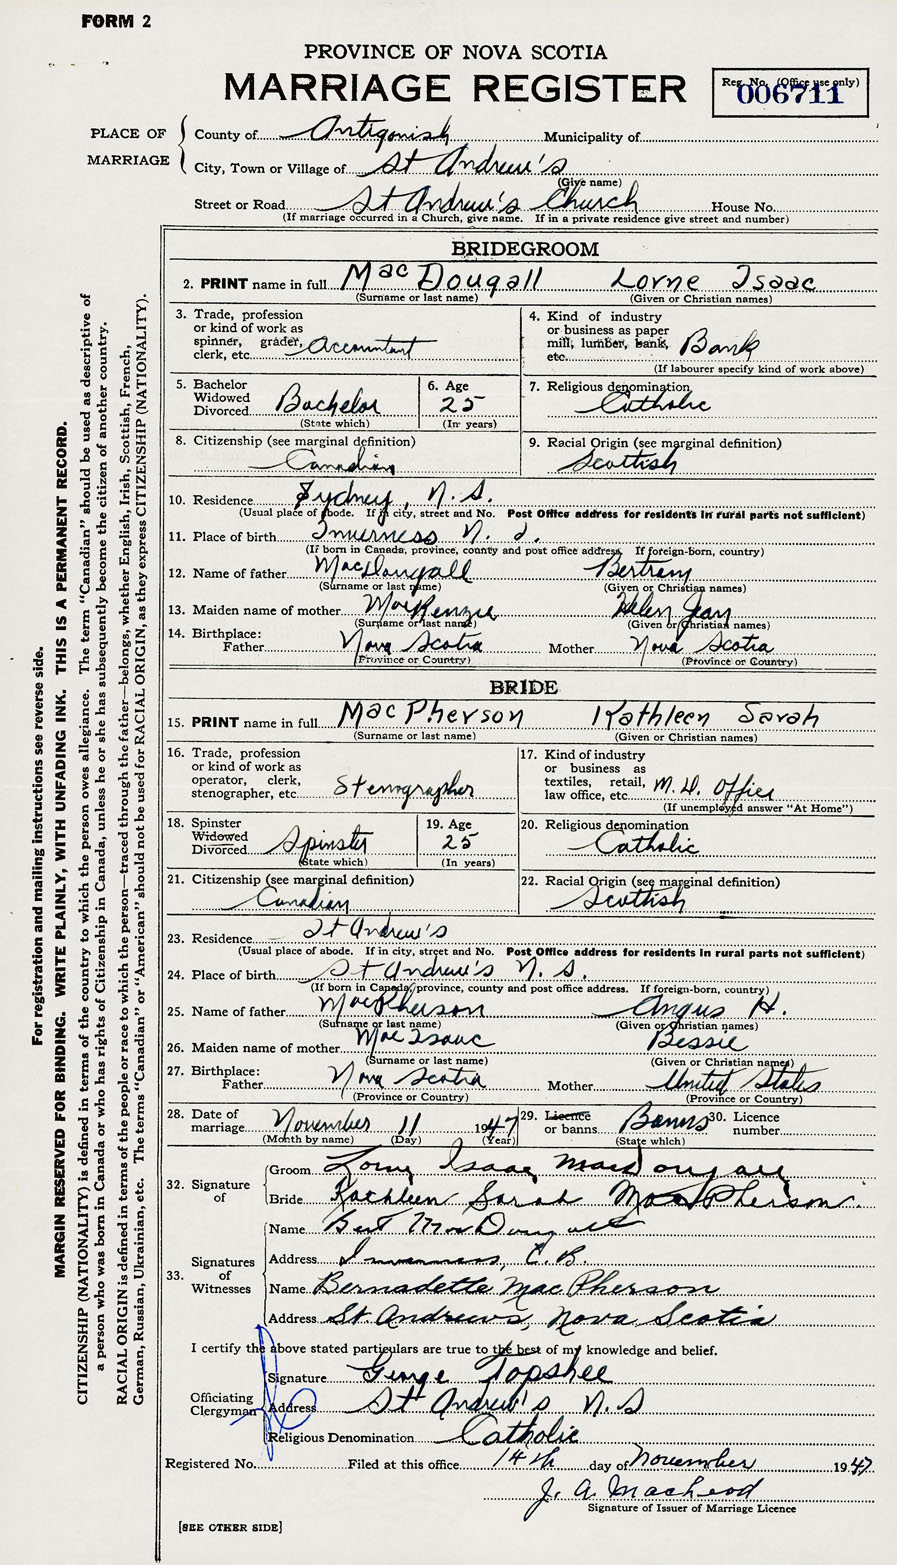 FORM 2
PROVINCE OF NOVA SCOTIA
MARRIAGE REGISTER
Reg. No. (Office use only)
006711
PLACE OF MARRIAGE
County of Antigonish Municipality of
City, Town or Village of St Andrew's
(Give name)
Street or Road St Andrew's Church House No.
(If marriage occurred in a Church, give name. If in a private residence give street and number)
BRIDEGROOM
2. PRINT name in full MacDougall Lorne Isaac
(Surname or last name) (Given or Christian names)
3. Trade, profession or kind of work as spinner, grader, clerk, etc. Accountant
4. Kind of industry or business as paper mill, lumber, bank, etc. Bank
(If labourer specify kind of work above)
5. Bachelor Widowed Divorced Bachelor
(State which)
6. Age 25
(In years)
7. Religious denomination Catholic
8. Citizenship (see marginal definition) Canadian
9. Racial Origin (see marginal definition) Scottish
10. Residence Sydney, N.S.
(Usual place of abode. If in city, street and No. Post Office address for residents in rural parts not sufficient)
11. Place of birth Inverness N. S.
(If born in Canada, province, county and post office address. If foreign-born, country)
12. Name of father MacDougall Bertram
(Surname or last name) (Given or Christian names)
13. Maiden name of mother MacKenzie Helen Jean
(Surname or last name) (Given or Christian names)
14. Birthplace:
Father Nova Scotia Mother Nova Scotia
(Province or Country) (Province or Country)
BRIDE
15. PRINT name in full MacPherson Kathleen Sarah
(Surname or last name) (Given or Christian names)
16. Trade, profession or kind of work as operator, clerk, stenographer, etc. Stenographer
17. Kind of industry or business as textiles, retail, law office, etc. M.D. Office
(If unemployed answer "At Home")
18. Spinster Widowed Divorced Spinster
(State which)
19. Age 25
(In years)
20. Religious denomination Catholic
21. Citizenship (see marginal definition) Canadian
22. Racial Origin (see marginal definition) Scottish
23. Residence St Andrew's
(Usual place of abode. If in city, street and No. Post Office address for residents in rural parts not sufficient)
24. Place of birth St Andrew's N. S.
(If born in Canada, province, county and post office address. If foreign-born, country)
25. Name of father MacPherson Angus H.
(Surname or last name) (Given or Christian names)
26. Maiden name of mother MacIsaac Bessie
(Surname or last name) (Given or Christian names)
27. Birthplace:
Father Nova Scotia Mother United States
(Province or Country) (Province or Country)
28. Date of marriage November 11 1947
(Month by name) (Day) (Year)
29. Licence or banns Banns
(State which)
30. Licence number
32. Signature of
Groom Lorne Isaac MacDougall
Bride Kathleen Sarah MacPherson.
33. Signatures of Witnesses
Name Bert MacDougall
Address Inverness, C.B.
Name Bernadette MacPherson
Address St. Andrew's, Nova Scotia
I certify the above stated particulars are true to the best of my knowledge and belief.
Officiating Clergyman
Signature George Topshee
Address St Andrew's N.S
Religious Denomination Catholic
Registered No. Filed at this office 14th day of November 1947
J. A. MacLeod
Signature of Issuer of Marriage Licence
[SEE OTHER SIDE]
For registration and mailing instructions see reverse side.
MARGIN RESERVED FOR BINDING. WRITE PLAINLY, WITH UNFADING INK. THIS IS A PERMANENT RECORD.
CITIZENSHIP (NATIONALITY) is defined in terms of the country to which the person owes allegiance. The term "Canadian" should be used as descriptive of
a person who was born in Canada or who has rights of Citizenship in Canada, unless he or she has subsequently become the citizen of another country.
RACIAL ORIGIN is defined in terms of the people or race to which the person—traced through the father—belongs, whether English, Irish, Scottish, French,
German, Russian, Ukrainian, etc. The terms "Canadian" or "American" should not be used for RACIAL ORIGIN, as they express CITIZENSHIP (NATIONALITY).